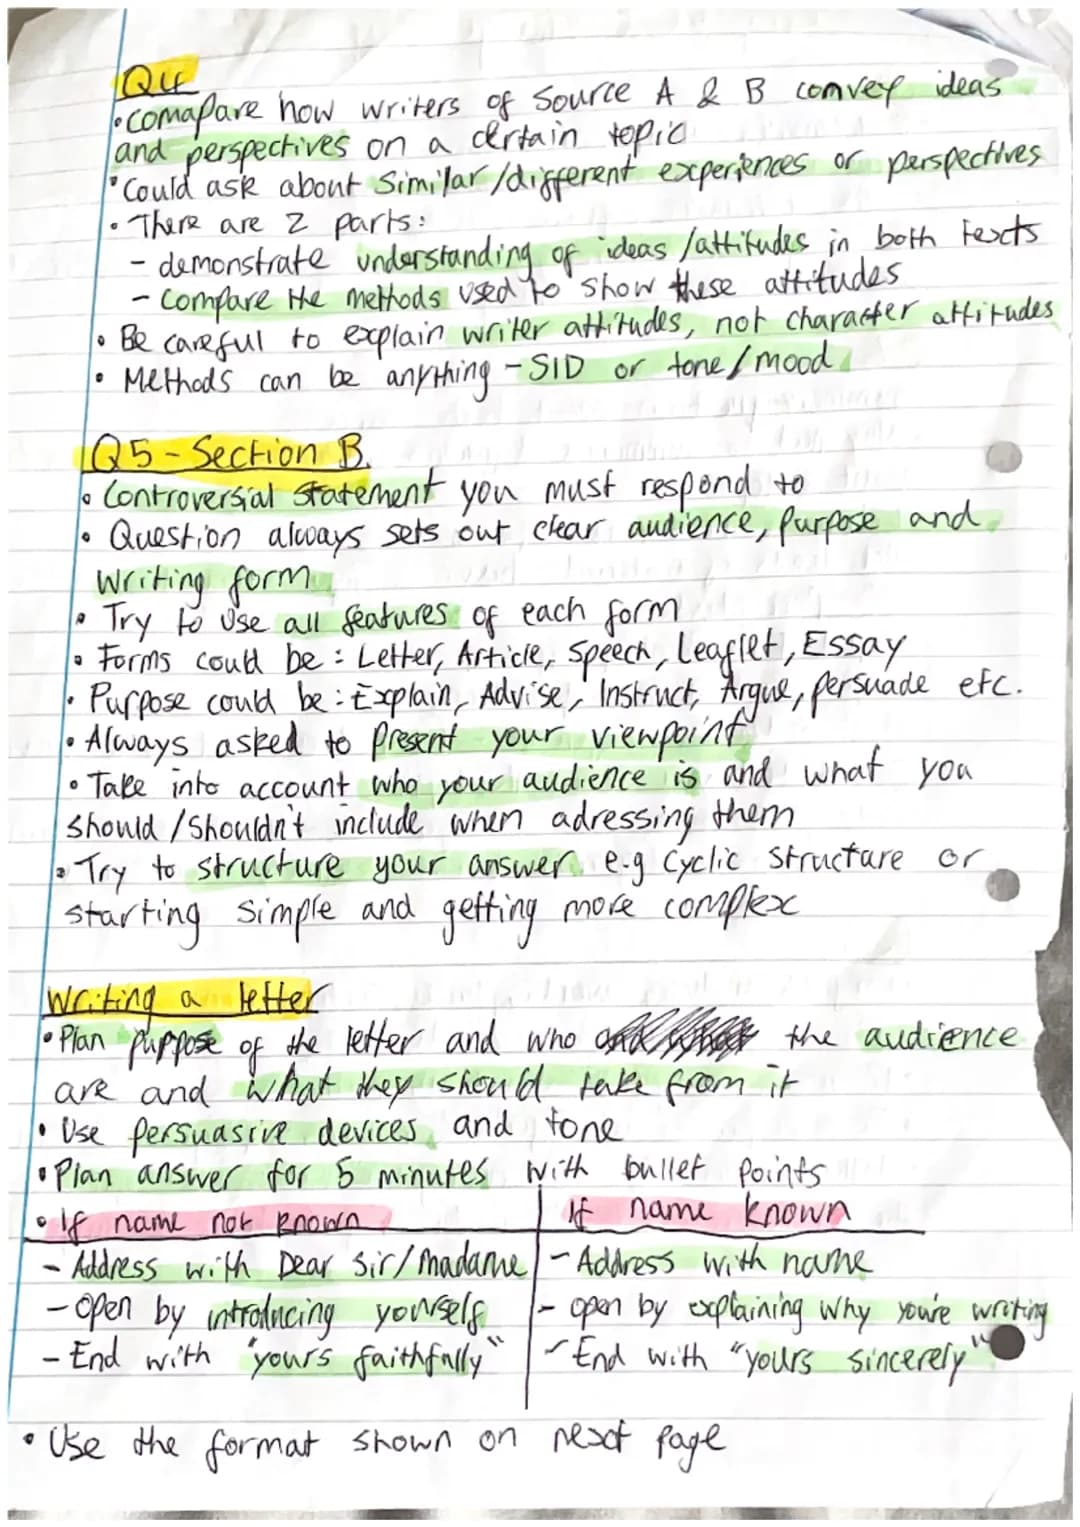 Q4
• comapare how writers of Source A & B convey ideas
and perspectives on a certain topic
• Could ask about Similar/different experiences or perspectives
• There are 2 parts:
- demonstrate understanding of ideas/attitudes in both texts
- Compare the methods used to show these attitudes
• Be careful to explain writer attitudes, not character attitudes
• Methods can be anything - SID or tone/mood
Q5 - Section B.
• Controversial statement you must respond to
• Question always sets out clear audience, purpose and
writing form
• Try to use all features of each form
• Forms could be: Letter, Article, Speech, Leaflet, Essay
• Purpose could be: Explain, Advise, Instruct, Argue, persuade etc.
• Always asked to present your viewpoint
• Take into account who your audience is and what you
should/shouldn't include when adressing them
• Try to structure your answer e.g cyclic structure or
starting simple and getting more complex
Writing a letter
• Plan puppose of the letter and who the audience
are and what they should take from it
• Use persuasive devices and tone
• Plan answer for 5 minutes with bullet points
• If name not known If name known
- Address with Dear Sir/Madame - Address with name
- open by introducing yourself - open by explaining why you're writing
- End with "yours faithfully" - End with "yours sincerely"
• Use the format shown on next page